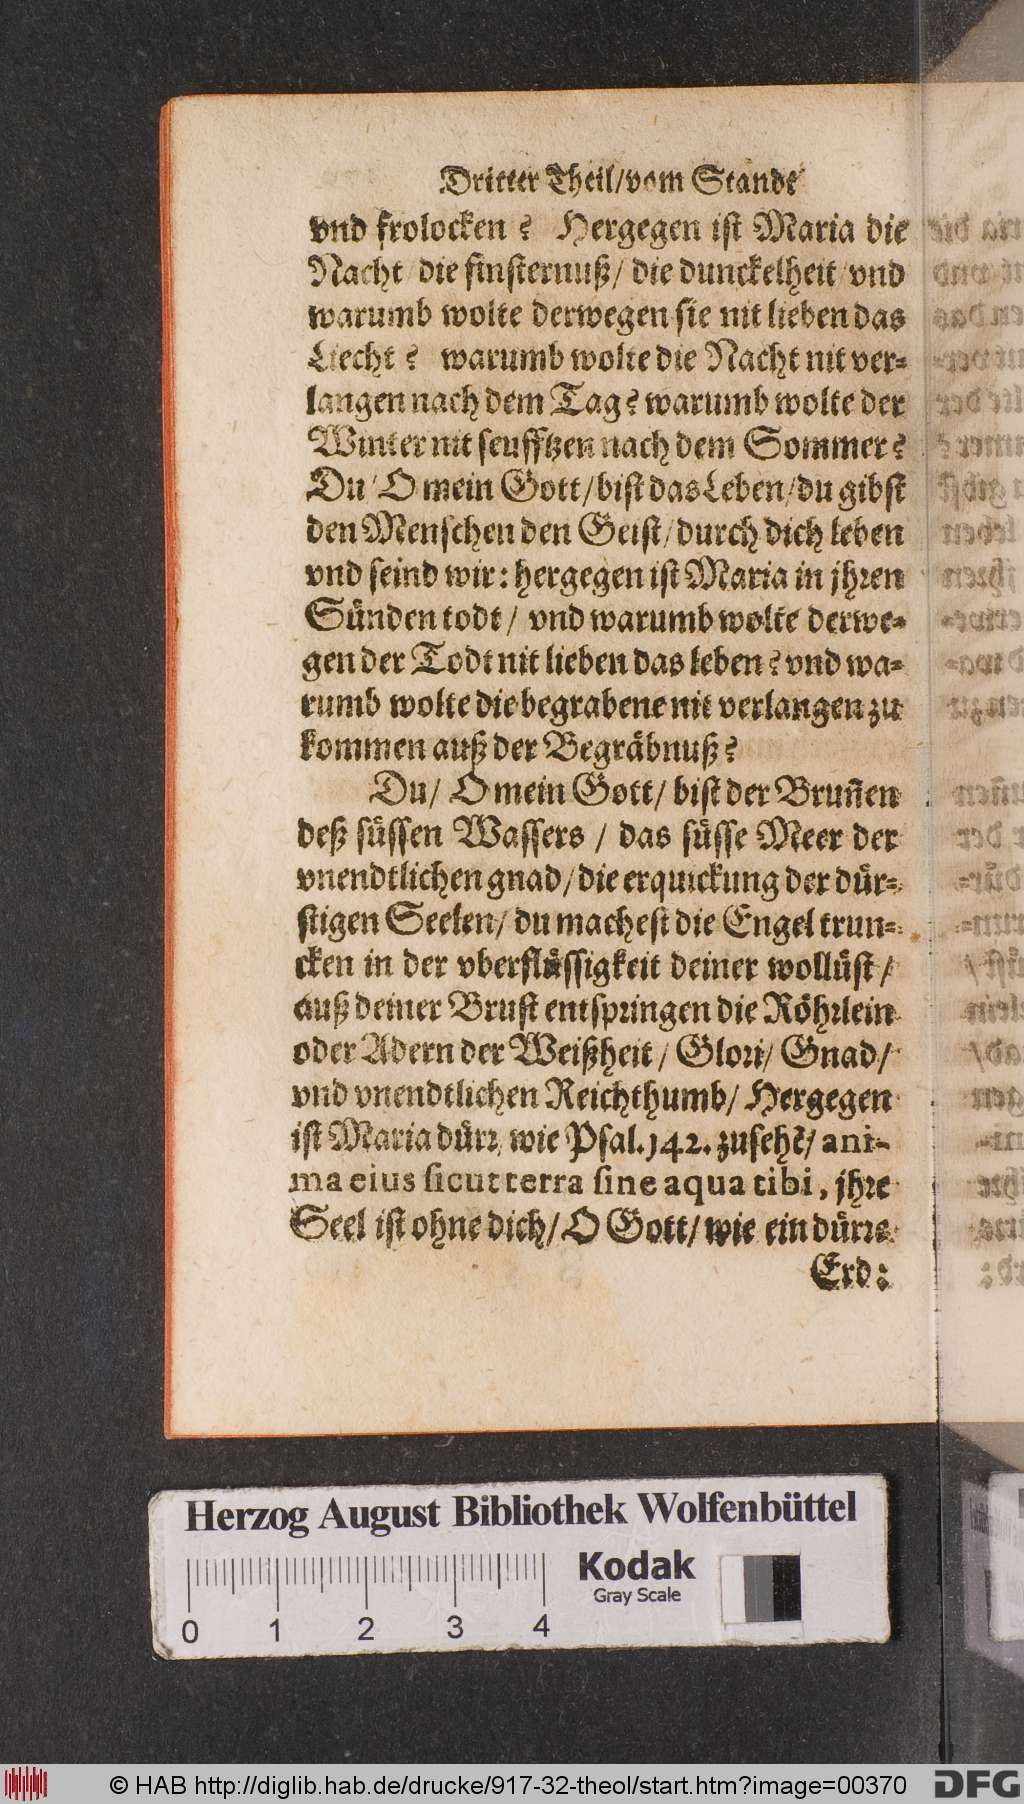 Dritter Theil/vom Stande
vnd frolocken? Hergegen ist Maria die
Nacht/die finsternuß/ die dunckelheit/vnd
warumb wolte derwegen sie nit lieben das
Liecht? warumb wolte die Nacht nit ver-
langen nach dem Tag? warumb wolte der
Winter nit seufftzen nach dem Sommer?
Du/O mein Gott/bist das Leben/du gibst
den Menschen den Geist/durch dich leben
vnd seind wir: hergegen ist Maria in jhren
Sünden todt/ vnd warumb wolte derwe-
gen der Todt nit lieben das leben? vnd wa-
rumb wolte die begrabene nit verlangen zu
kommen auß der Begräbnuß?
Du/ O mein Gott/ bist der Brun̄en
deß süssen Wassers / das süsse Meer der
vnendtlichen gnad/die erquickung der dür-
stigen Seelen/ du machest die Engel trun-
cken in der vberflüssigkeit deiner wollüst/
auß deiner Brust entspringen die Röhrlein
oder Adern der Weißheit/ Glori/ Gnad/
vnd vnendtlichen Reichthumb/ Hergegen
ist Maria dürr, wie Psal.142. zusehē/ ani-
ma eius sicut terra sine aqua tibi, jhre
Seel ist ohne dich/O Gott/wie ein dürre
Erd:
Herzog August Bibliothek Wolfenbüttel
Kodak
Gray Scale
0 1 2 3 4
© HAB http://diglib.hab.de/drucke/917-32-theol/start.htm?image=00370
DFG